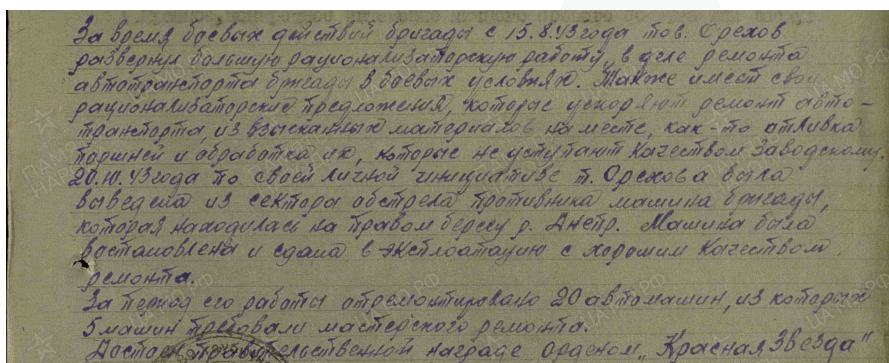 За время боевых действий бригады с 15.8.43 года тов. Орехов
развернул большую рационализаторскую работу, в деле ремонта
автотранспорта бригады в боевых условиях. Также имеет свои
рационализаторские предложения, которые ускоряют ремонт авто-
транспорта, из взысканных материалов на месте, как-то отливка
поршней и обработка их, которые не уступают качеством заводскому.
20.10.43 года по своей личной инициативе т. Орехова была
выведена из сектора обстрела противника машина бригады,
которая находилась на правом берегу р. Днепр. Машина была
востановлена и сдана в эксплоатацию с хорошим качеством
ремонта.
За период его работы отремонтировано 20 автомашин, из которых
5 машин требовали мастерского ремонта.
Достоин правительственной награде орденом „Красная Звезда"
ПАМО.РФ